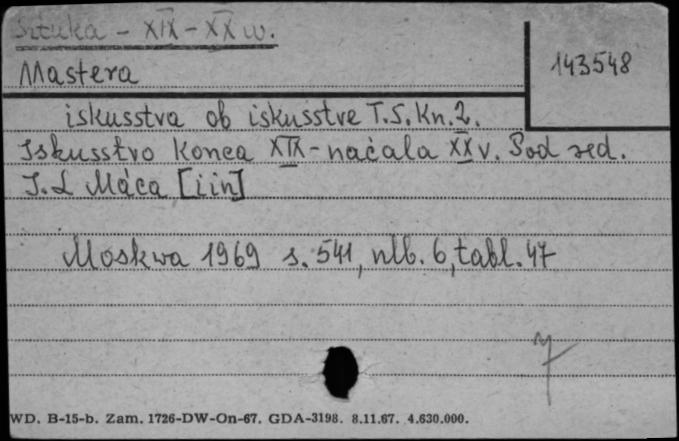 Sztuka - XIX - XX w.
Mastera
143548
iskusstva ob iskusstve T.5. Kn.2.
Iskusstvo Konca XIX - načala XX v. Pod red.
I. L Máca [i in]
Moskwa 1969 s. 541, nlb. 6, tabl. 47
7
WD. B-15-b. Zam. 1726-DW-On-67. GDA-3198. 8.11.67. 4.630.000.